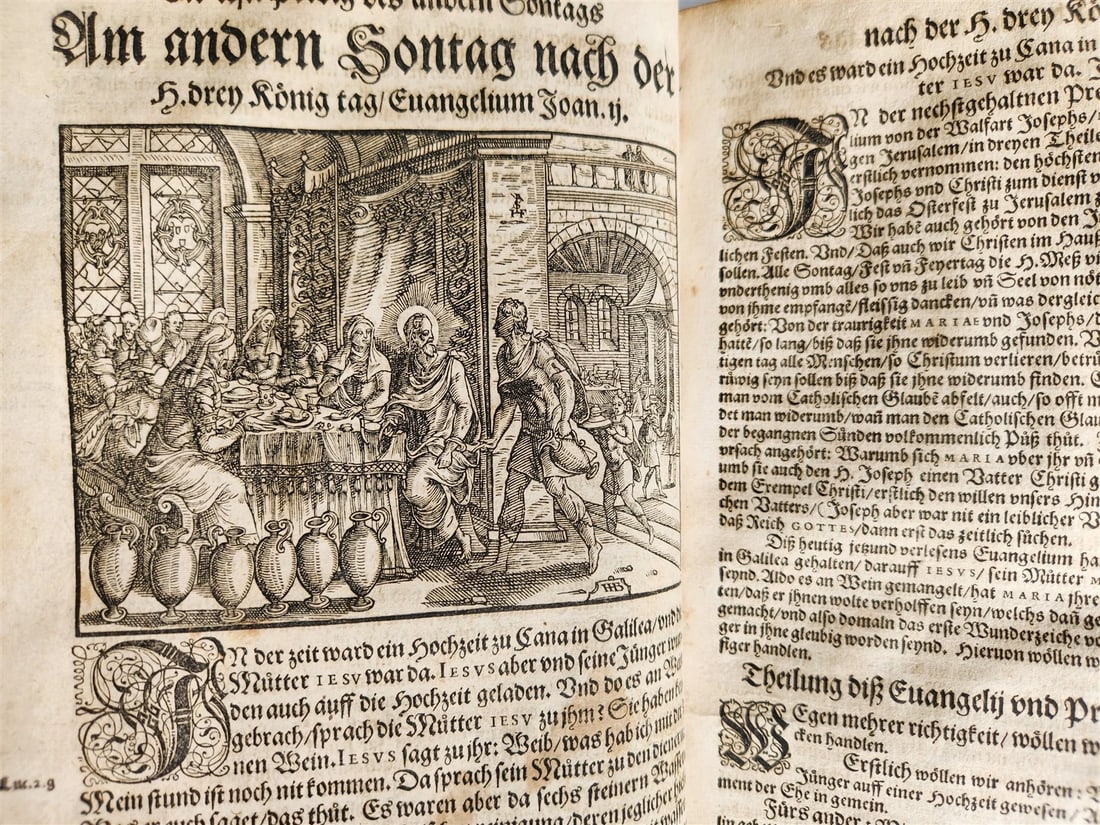 des andern Sontags
Am andern Sontag nach der
H. drey König tag/ Euangelium Joan. ij.
IN der zeit ward ein Hochzeit zu Cana in Galilea/ vnd
Mütter IESV war da. IESVS aber vnd seine Jünger
den auch auff die Hochzeit geladen. Vnd do es an
gebrach/ sprach die Mütter IESV zu jhm: Sie haben
nen Wein. IESVS sagt zu jhr: Weib/ was hab ich mit
Mein stund ist noch nit kommen. Da sprach sein Mütter zu den
er auch saget/ das thüt. Es waren aber da sechs steinern
deren jeglicher
nach der H. drey
Vnd es ward ein Hochzeit zu Cana in
ter IESV war da.
IN der nechstgehaltnen
lium von der Walfart Josephs/
gen Jerusalem/ in dreyen Theile
erstlich vernommen: den höchsten
Josephs vnd Christi zum dienst
lich das Osterfest zu Jerusalem
Wir habē auch gehört von den
lichen Festen. Vnd/ Daß auch wir Christen im Hauß
sollen. Alle Sontag/ Fest vñ Feyertag die H. Meß
vnderthenig vmb alles so vns zu leib vñ Seel von nöt
von jhme empfangē/ fleissig dancken/ vñ was dergleic
gehört: Von der traurigkeit MARIAE vnd Josephs/
hattē/ so lang/ biß daß sie jhne widerumb gefunden.
tigen tag alle Menschen/ so Christum verlieren/ betrü
rüwig seyn sollen biß daß sie jhne widerumb finden.
man vom Catholischen Glaubē abfelt/ auch/ so offt
det man widerumb/ wañ man den Catholischen Glau
der begangnen Sünden volkommenlich Püß thüt.
vrsach angehört: Warumb sich MARIA vber jhr vñ
umb sie auch den H. Joseph einen Vatter Christi
dem Exempel Christi/ erstlich den willen vnsers Him
chen Vatters/ (Joseph aber war nit ein leiblicher
daß Reich GOTTES/ dann erst das zeitlich süchen.
Diß heutig jetzund verlesens Euangelium
in Galilea gehalten/ darauff IESVS/ sein Mütter
seynd. Aldo es an Wein gemangelt/ hat MARIA jhre
ten/ daß er jhnen wolte verholffen seyn/ welchs dañ
gemacht/ vnd also domaln das erste Wunderzeiche
ger in jhne gleubig worden seynd. Hieruon wöllen
siger handlen.
Theilung diß Euangelij vnd
WEgen mehrer richtigkeit/ wöllen
cken handlen.
Erstlich wöllen wir anhören:
Jünger auff einer Hochzeit gewesen/
ment der Ehe in gemein.
Fürs ander: